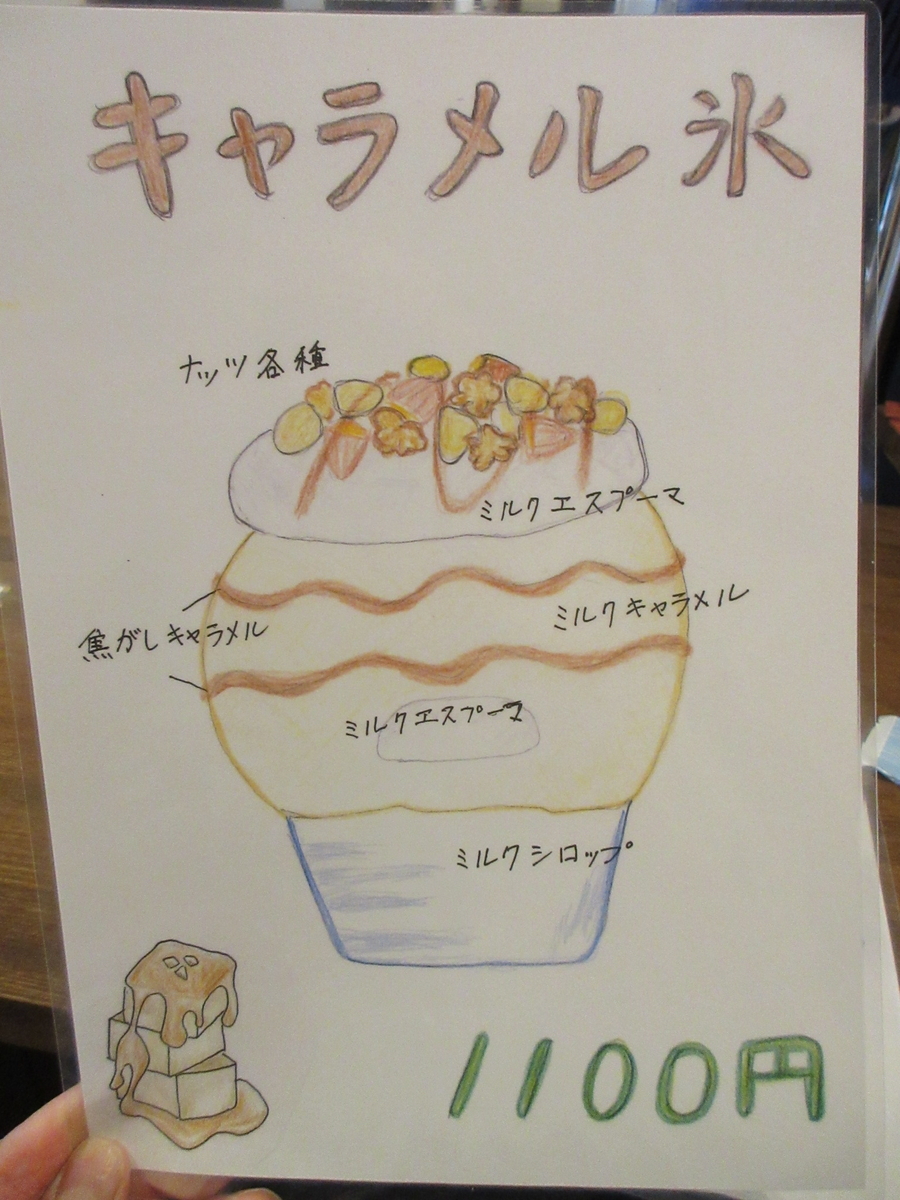 キャラメル氷
ナッツ各種
ミルクエスプーマ
ミルクキャラメル
焦がしキャラメル
ミルクエスプーマ
ミルクシロップ
1100円